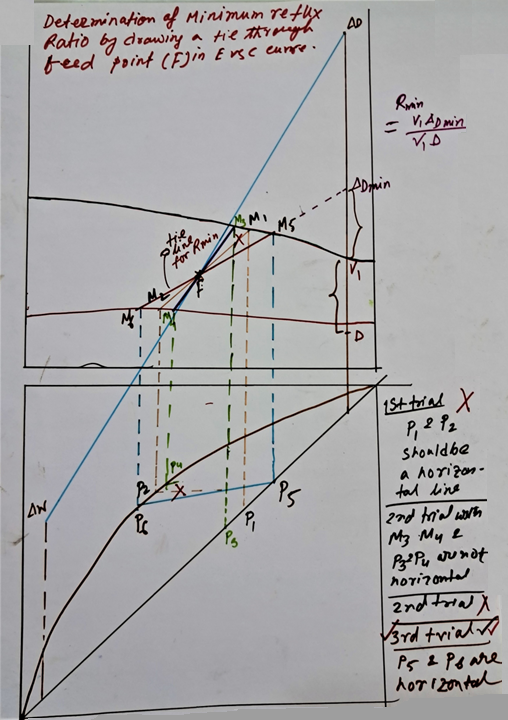 Determination of Minimum reflux
Ratio by drawing a tie through
feed point (F) in E vs C curve.
ΔD
Rmin
= V1 ΔDmin
V1 D
ΔDmin
M3 M1 M5
X
tie
line
for Rmin
F
V1
M2
M6
M4
D
1st trial X
P1 & P2
should be
a horizon-
tal line
2nd trial with
M3 M4 &
P3 & P4 are not
horizontal
2nd trial X
3rd trial
P5 & P6 are
horizontal
P4
P2
X
P5
P6
ΔW
P1
P3